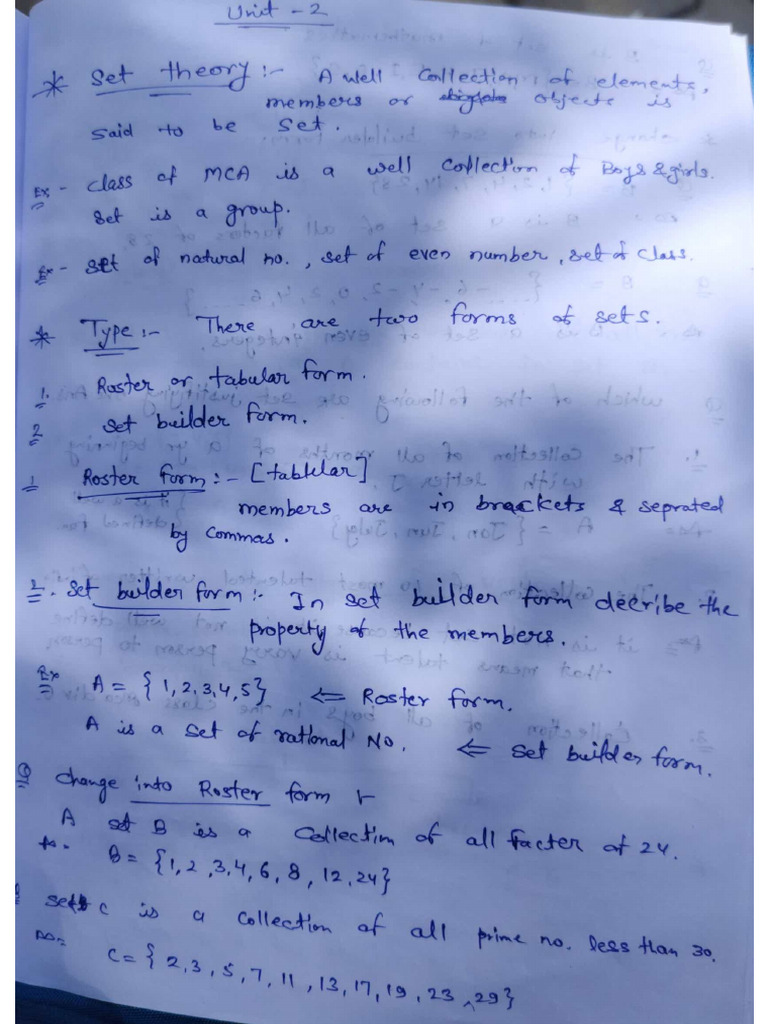 Unit - 2
* Set theory :- A well Collection of elements,
members or objects is
said to be set.
Ex - class of MCA is a well Collection of Boys & girls.
set is a group.
Ex - set of natural no., set of even number, set of class.
* Type :- There are two forms of sets.
1. Roster or tabular form.
2 set builder form.
1 Roster form :- [tablelar]
members are in brackets & seprated
by commas.
2. set builder form :- In set builder form decribe the
property of the members.
Ex A = {1,2,3,4,5} ⇐ Roster form.
A is a set of rational No. ⇐ set builder form.
Q change into Roster form :-
A set B is a Collection of all facter of 24.
B = {1,2,3,4,6,8,12,24}
set C is a collection of all prime no. less than 30.
C = {2,3,5,7,11,13,17,19,23,29}